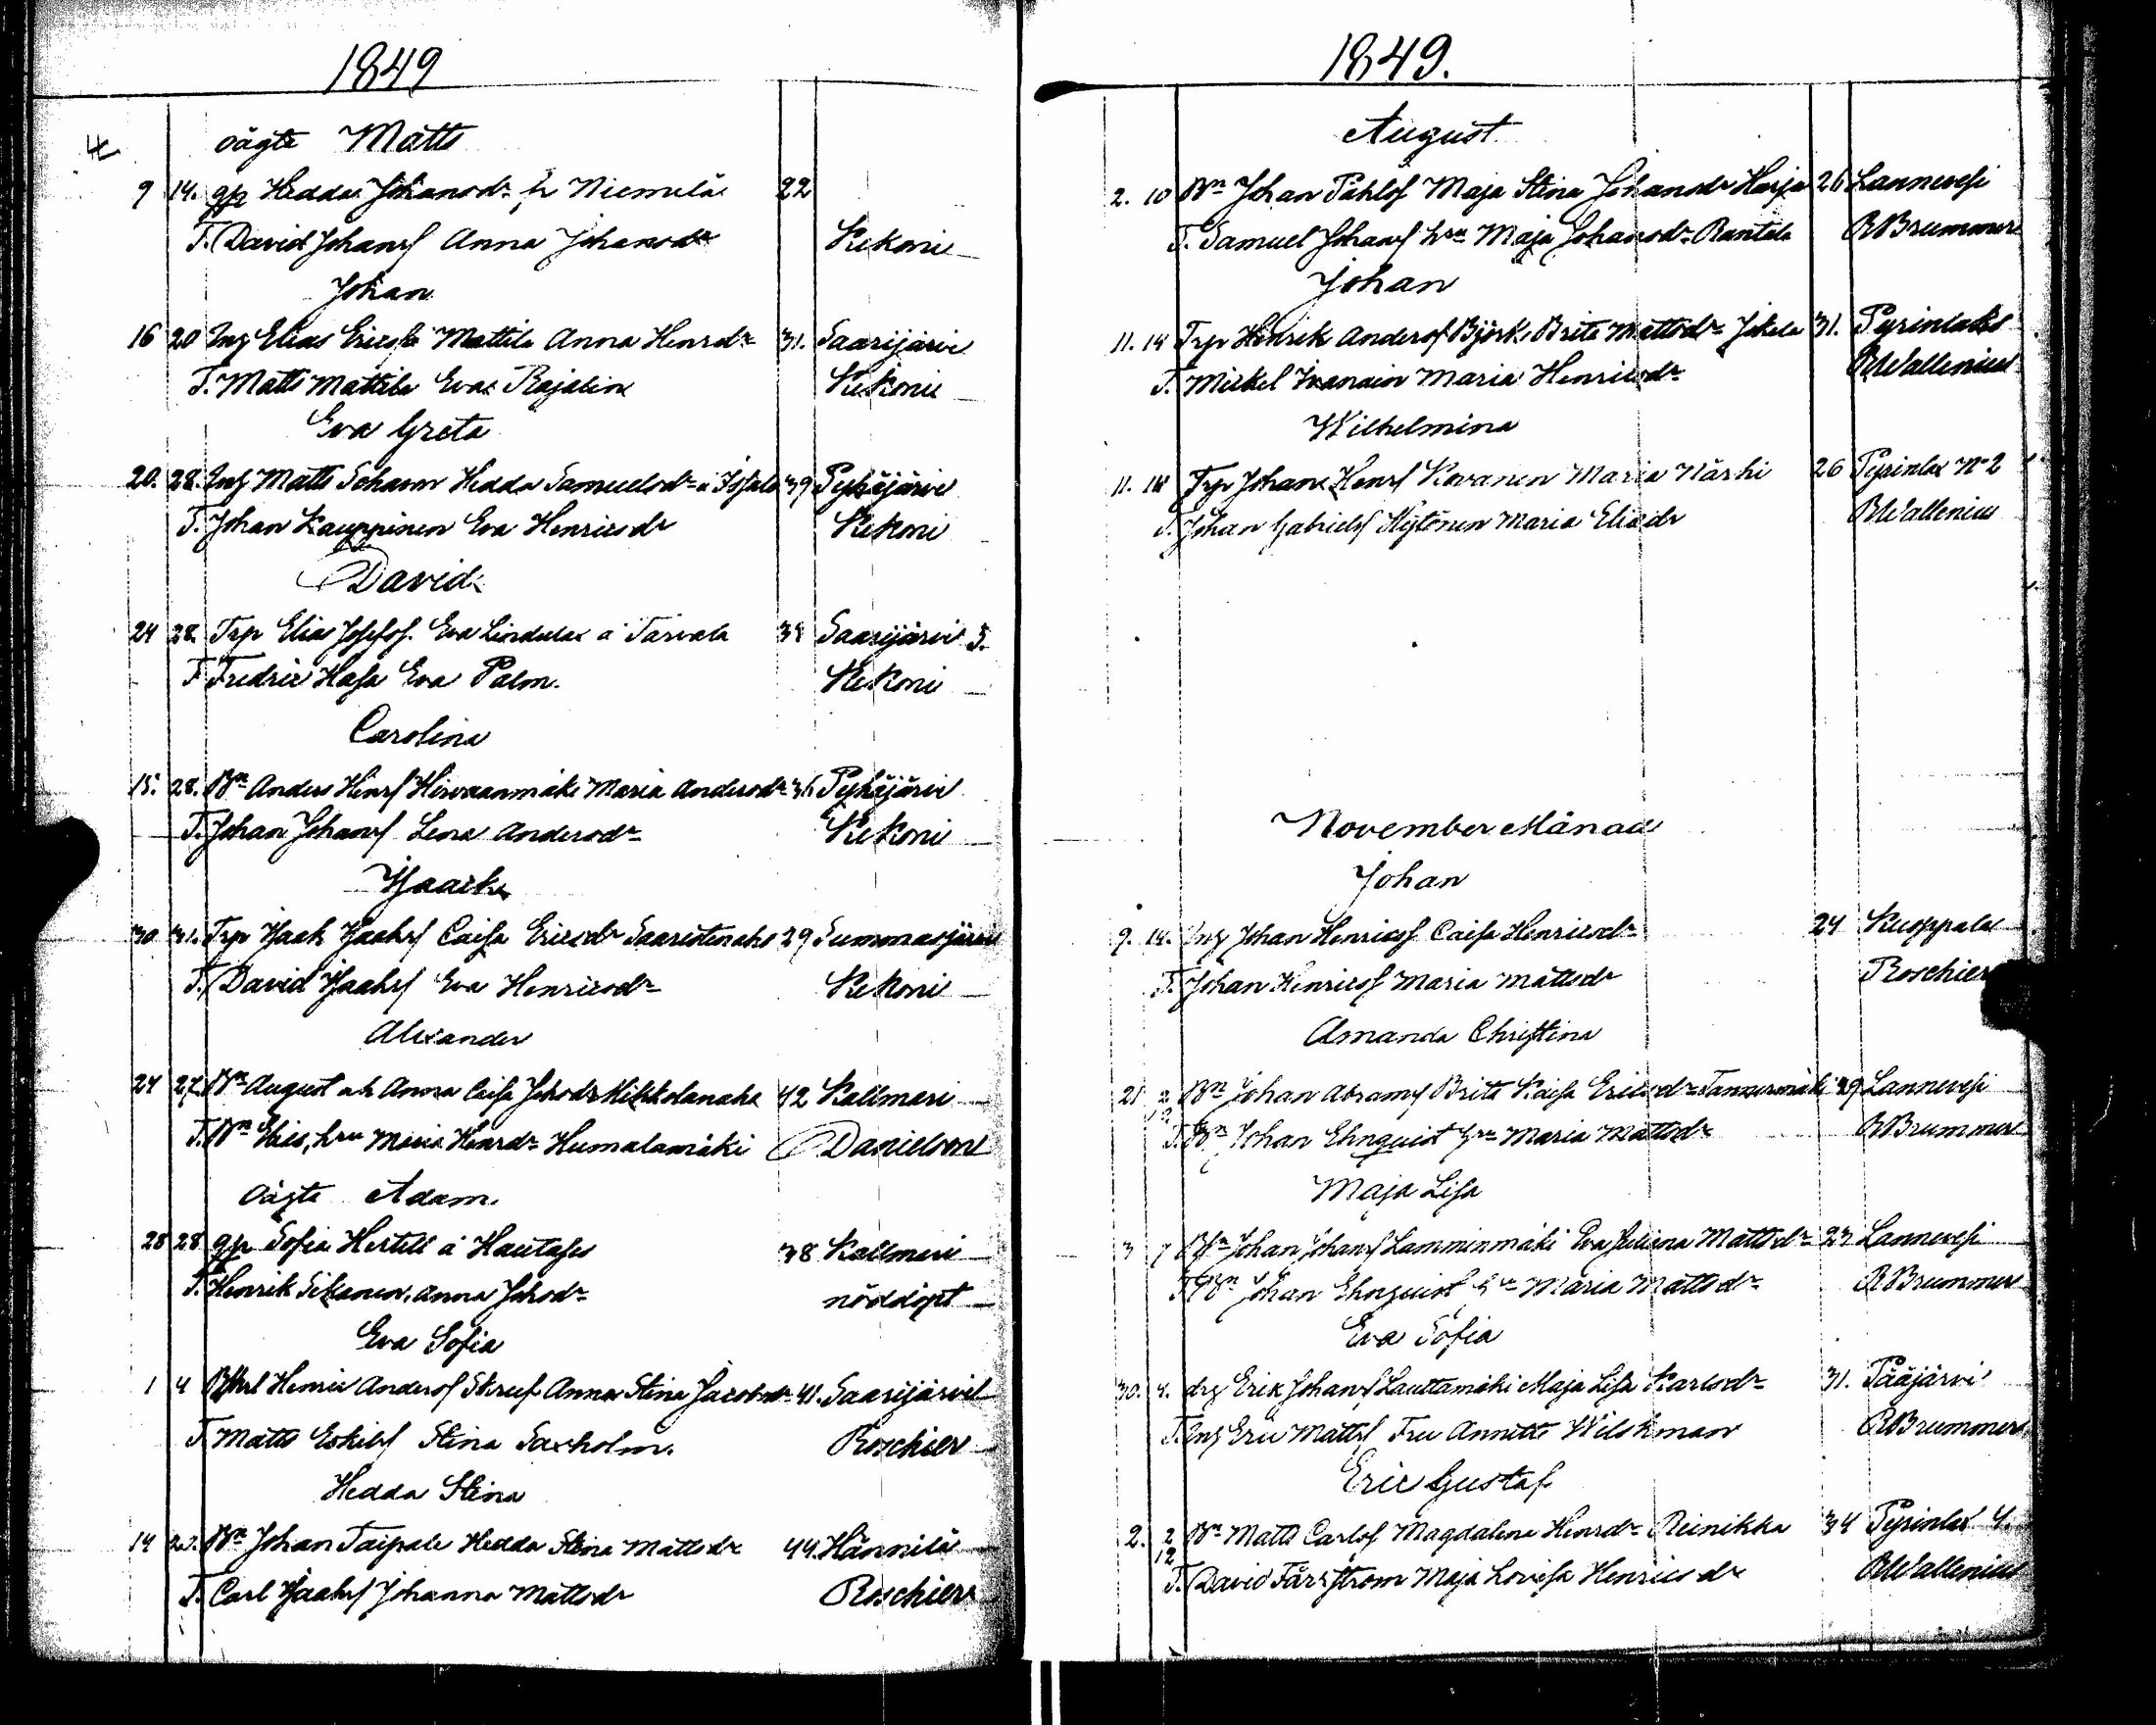 1849
oägte Matts
9 14. gp Hedda Johansdr fr Niemelä 22
T. David Johansf Anna Johansdr Kekoni
Johan
16 20 Ing Elias Ericsf Mattila Anna Henrdr 31. Saarijärvi
T. Matts Mattila Eva Rajalin Kekoni
Eva Greta
20. 28. Ing Matts Johann Hedda Samuelsdr a 39 Pyhäjärvi
T. Johan Kauppinen Eva Henricsdr Kekoni
David
24 28. Trp Elias Josefsf. Eva Lindula a Tarvala 38 Saarijärvi 3.
T Fredric Hasa Eva Palm. Kekoni
Carolina
15. 28. Bn Anders Henrsf Hirvaanmäki Maria Andersdr 36 Pyhäjärvi
T. Johan Johansf Lena Andersdr Kekoni
Isaack
30 31. Trp Isaak Isaaksf Caisa Ericsdr Saaristenaho 29 Summasjärvi
T. David Isaaksf Eva Henricsdr Kekoni
Alexander
24 27. Bn August och Anna Caisa Johsdr Mikkolanaho 42 Kallmari
T. Bn Elias, hru Maria Henrdr Humalamäki Danielson
Oägta Adam.
28 28 gp Sofia Hertell a Hautala 38 Kallmari
T. Henrik Sikanen, Anna Johsdr nöddöpt
Eva Sofia
1 4 Henric Andersf Skruf Anna Stina Jacobsdr 41. Saarijärvi
T. Matts Eskilsf Stina Saxholm. Roschier
Hedda Stina
14 Bn Johan Taipale Hedda Stina Mattsdr 44. Hännilä
T. Carl Isaaksf Johanna Mattsdr Roschier
1849.
August
2. 10 Bn Johan Påhlsf Maja Stina Johansdr Harja 26 Lannevesi
T. Samuel Johansf hru Maja Johansdr Rantala RBrummer
Johan
11. 14 Trp Henrik Andersf Björk Brita Mattsdr Jokela 31. Pyrinlaks
T. Mickel Ivanain Maria Henricsdr RWallenius
Wilhelmina
11. 18 Trp Johan Henrsf Kovanen Maria Närhi 26 Pyrinlax No 2
T. Johan Gabrielsf Hytönen Maria Eliædr RWallenius
November Månad
Johan
9. 14. Ing Johan Henricsf Caisa Henricsdr 24 Kuoppala
T. Johan Henricsf Maria Mattsdr Roschier
Amanda Christina
21 2/12 Bn Johan Abramsf Brita Kaisa Ericsdr Tannermäki 29 Lannevesi
T. Bn Johan Ehnquist hru Maria Mattsdr RBrummer
Maja Lisa
3 7 Bn Johan Johansf Lamminmäki Eva Juliana Mattsdr 23 Lannevesi
T Bn Johan Ehnquist hru Maria Mattsdr RBrummer
Eva Sofia
30. 4. drg Erik Johansf Lauttamäki Maja Lisa Karlsdr 31. Pääjärvi
T. Ing Eric Mattsf Fru Annette Wilskman RBrummer
Eric Gustaf
2. 2/12 Bn Matts Carlsf Magdalena Henrdr Reinikka 34 Pyrinlax 4.
T. David Färström Maja Lovisa Henricsdr RWallenius